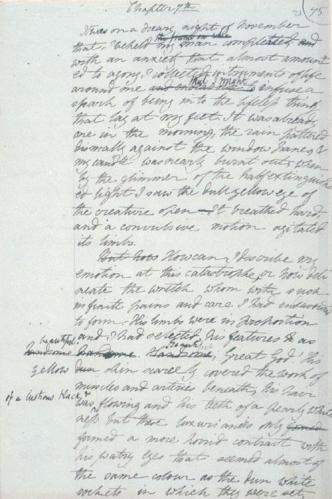 Chapter 7th
75
It was on a dreary night of November
that I beheld my man completed and
with an anxiety that almost amount
ed to agony, I collected instruments of life
around me that I might infuse a
spark of being into the lifeless thing
that lay at my feet. It was already
one in the morning, the rain pattered
dismally against the window panes, &
my candle was nearly burnt out, when
by the glimmer of the half extinguish
ed light I saw the dull yellow eye of
the creature open—It breathed hard,
and a convulsive motion agitated
its limbs.
But how How can I describe my
emotion at this catastrophe, or how deli
neate the wretch whom with such
infinite pains and care I had endeavoured
to form. His limbs were in proportion
and I had selected his features as
beautiful
handsome handsome Handsome. Great God! His
yellow skin scarcely covered the work of
muscles and arteries beneath; his hair
of a lustrous black, &
was flowing and his teeth of a pearly white
ness but these luxuriances only
formed a more horrid contrast with
his watry eyes that seemed almost of
the same colour as the dun white
sockets in which they were set,